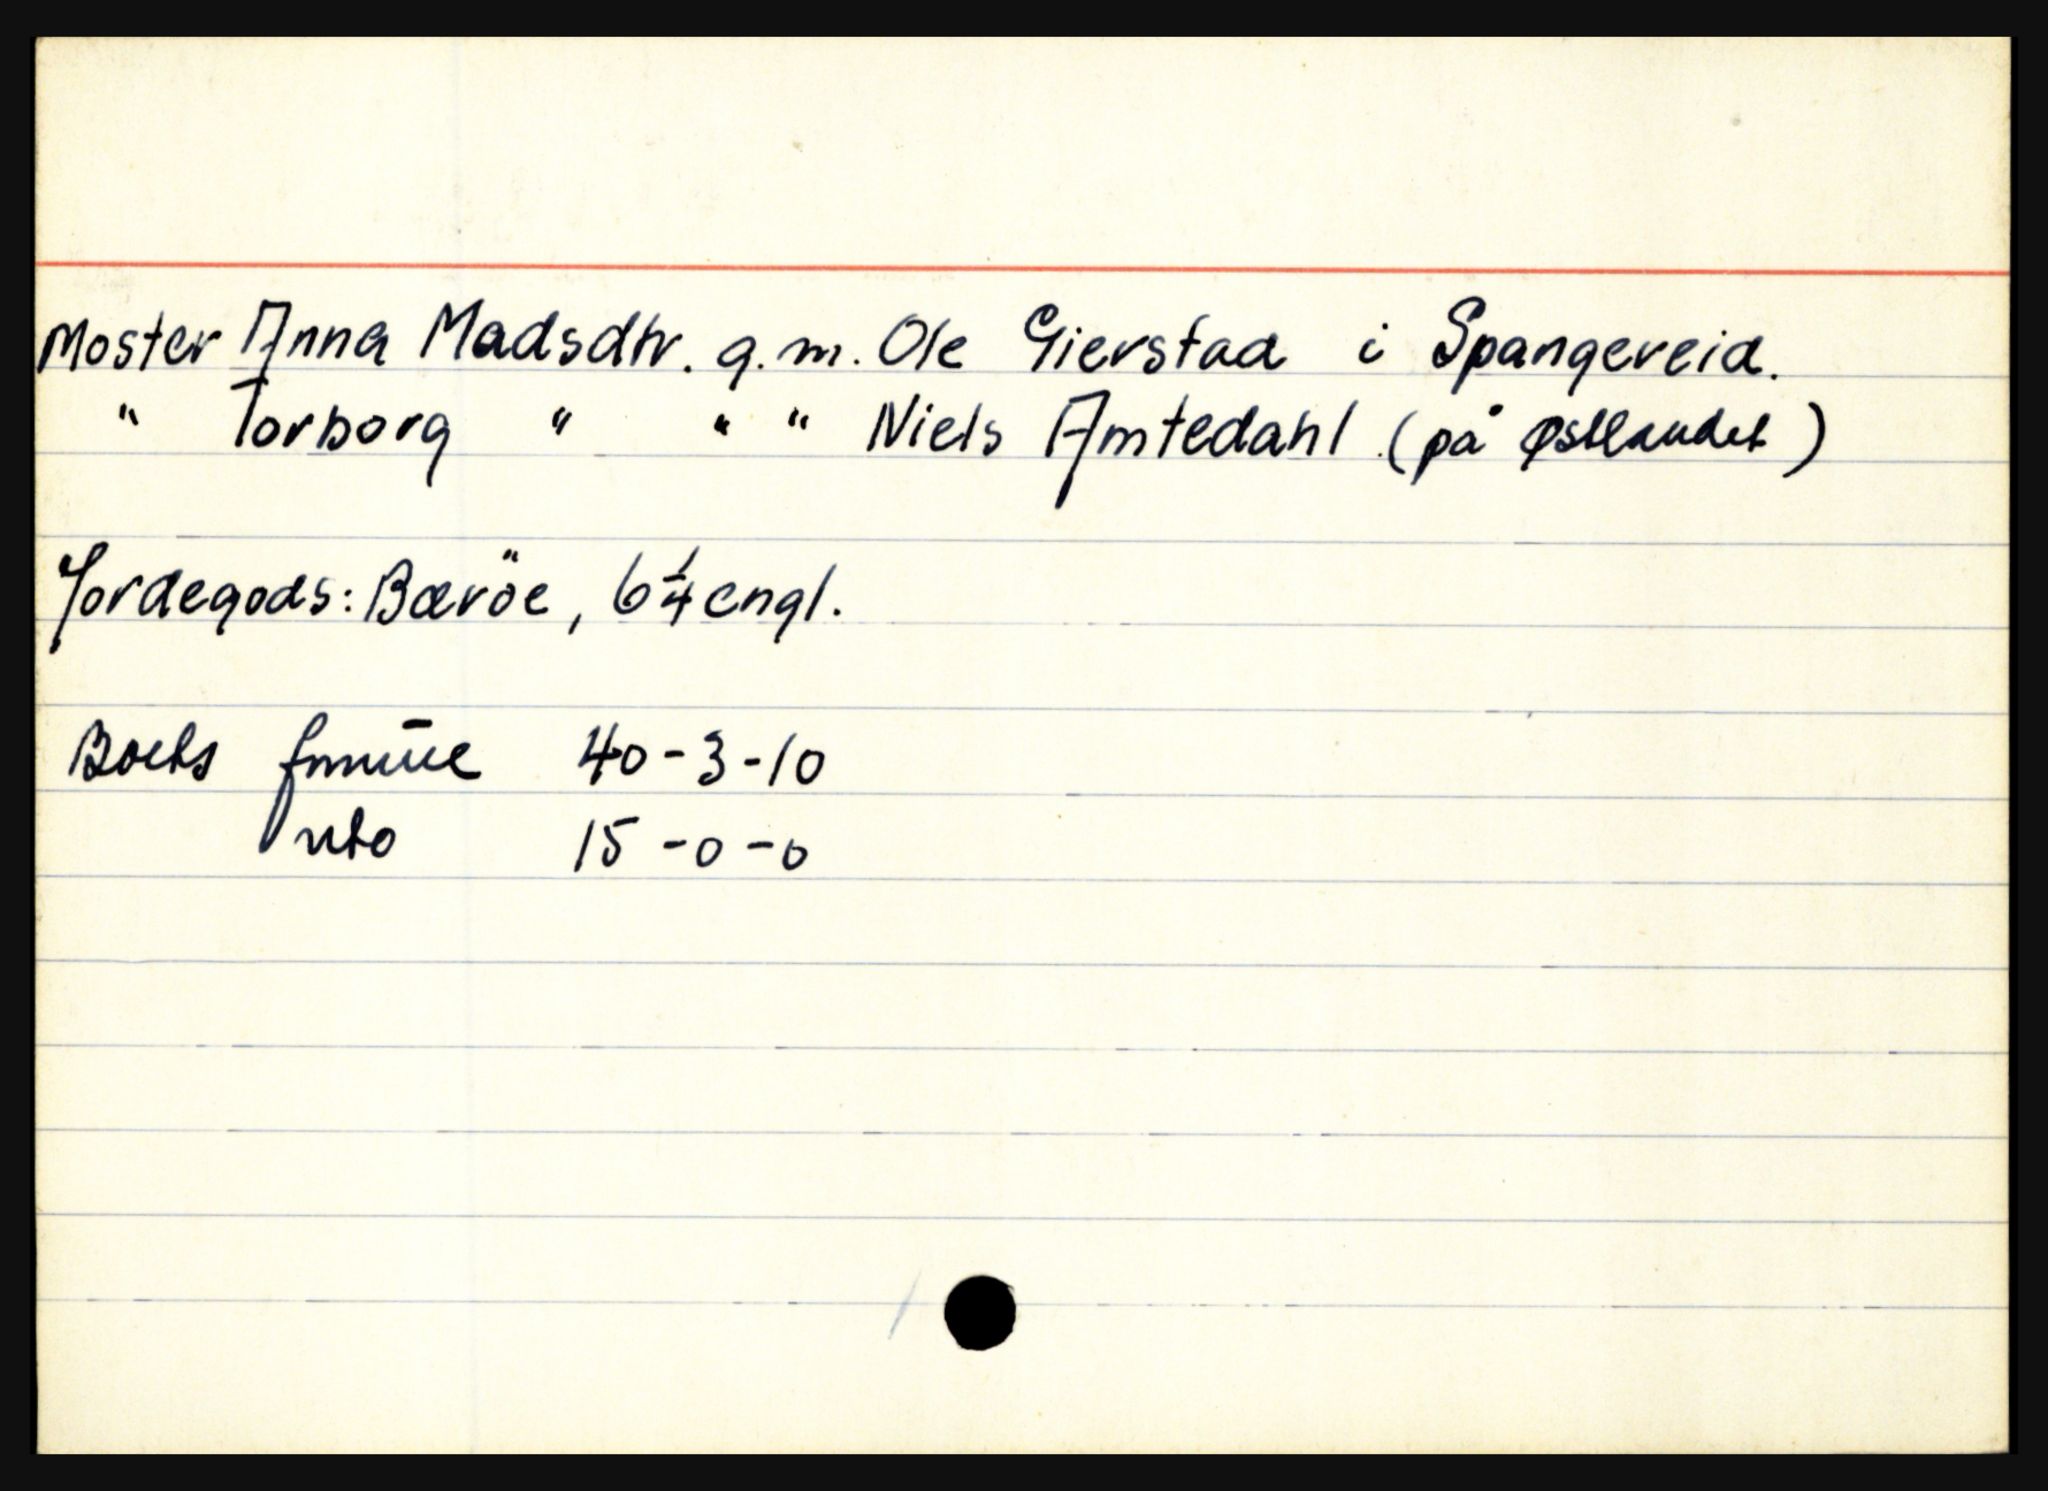 Moster Anna Madsdtr. g.m. Ole Gierstad i Spangereid.
" Torborg " " " Niels Amtedahl (på Østlandet)
Jordegods: Bæröe, 6 1/4 engl.
Boets 40-3-10
nto 15-0-0